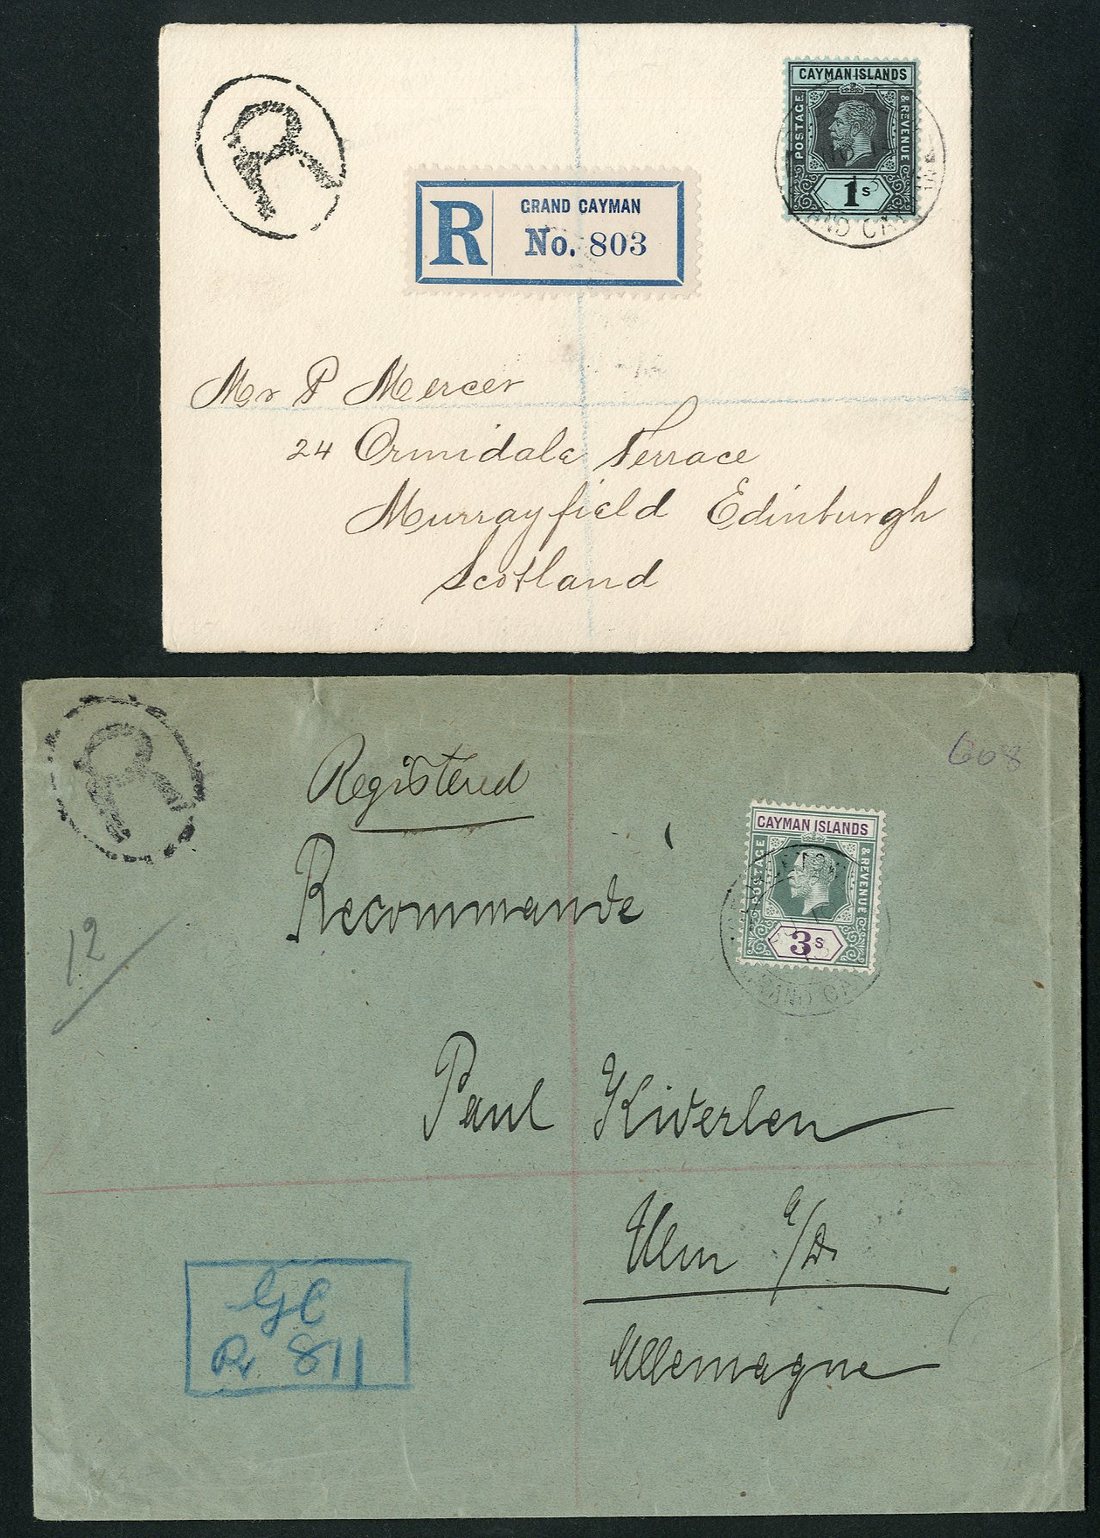 R
CAYMAN ISLANDS
POSTAGE
& REVENUE
1s
R
GRAND CAYMAN
No. 803
Mr P Mercer
24 Ormidale Terrace
Murrayfield Edinburgh
Scotland
R
Registered
608
Recommandé
CAYMAN ISLANDS
POSTAGE
& REVENUE
3s
12
Paul Kiderlen
Ulm a/D.
Allemagne
GC
R 811